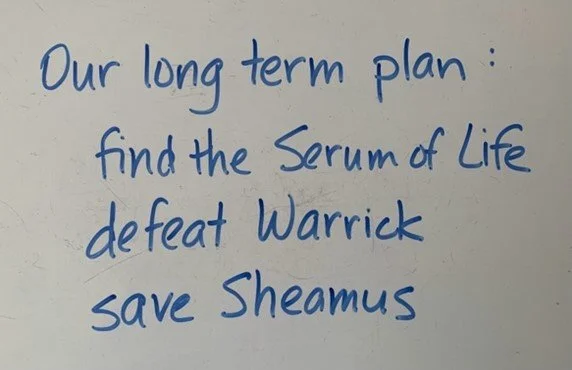 Our long term plan :
find the Serum of Life
defeat Warrick
save Sheamus